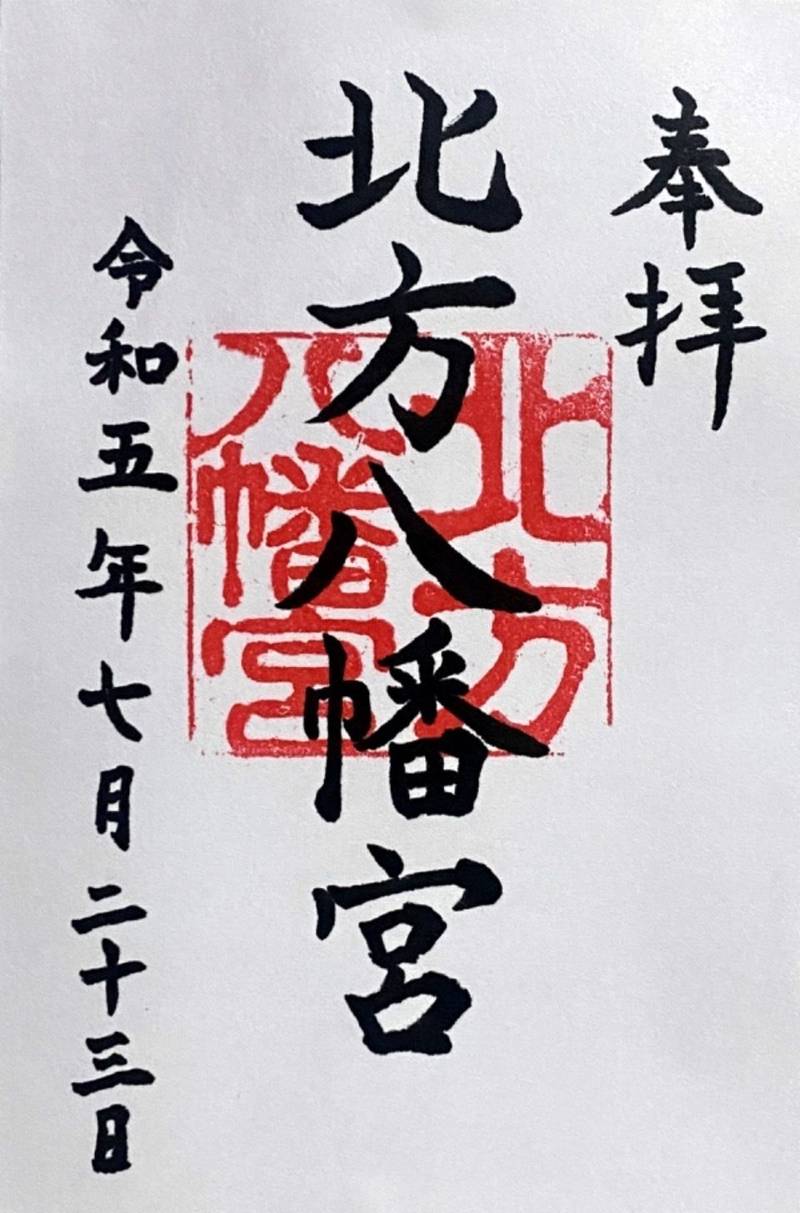 奉拝
北方八幡宮
北方
八幡宮
令和五年七月二十三日